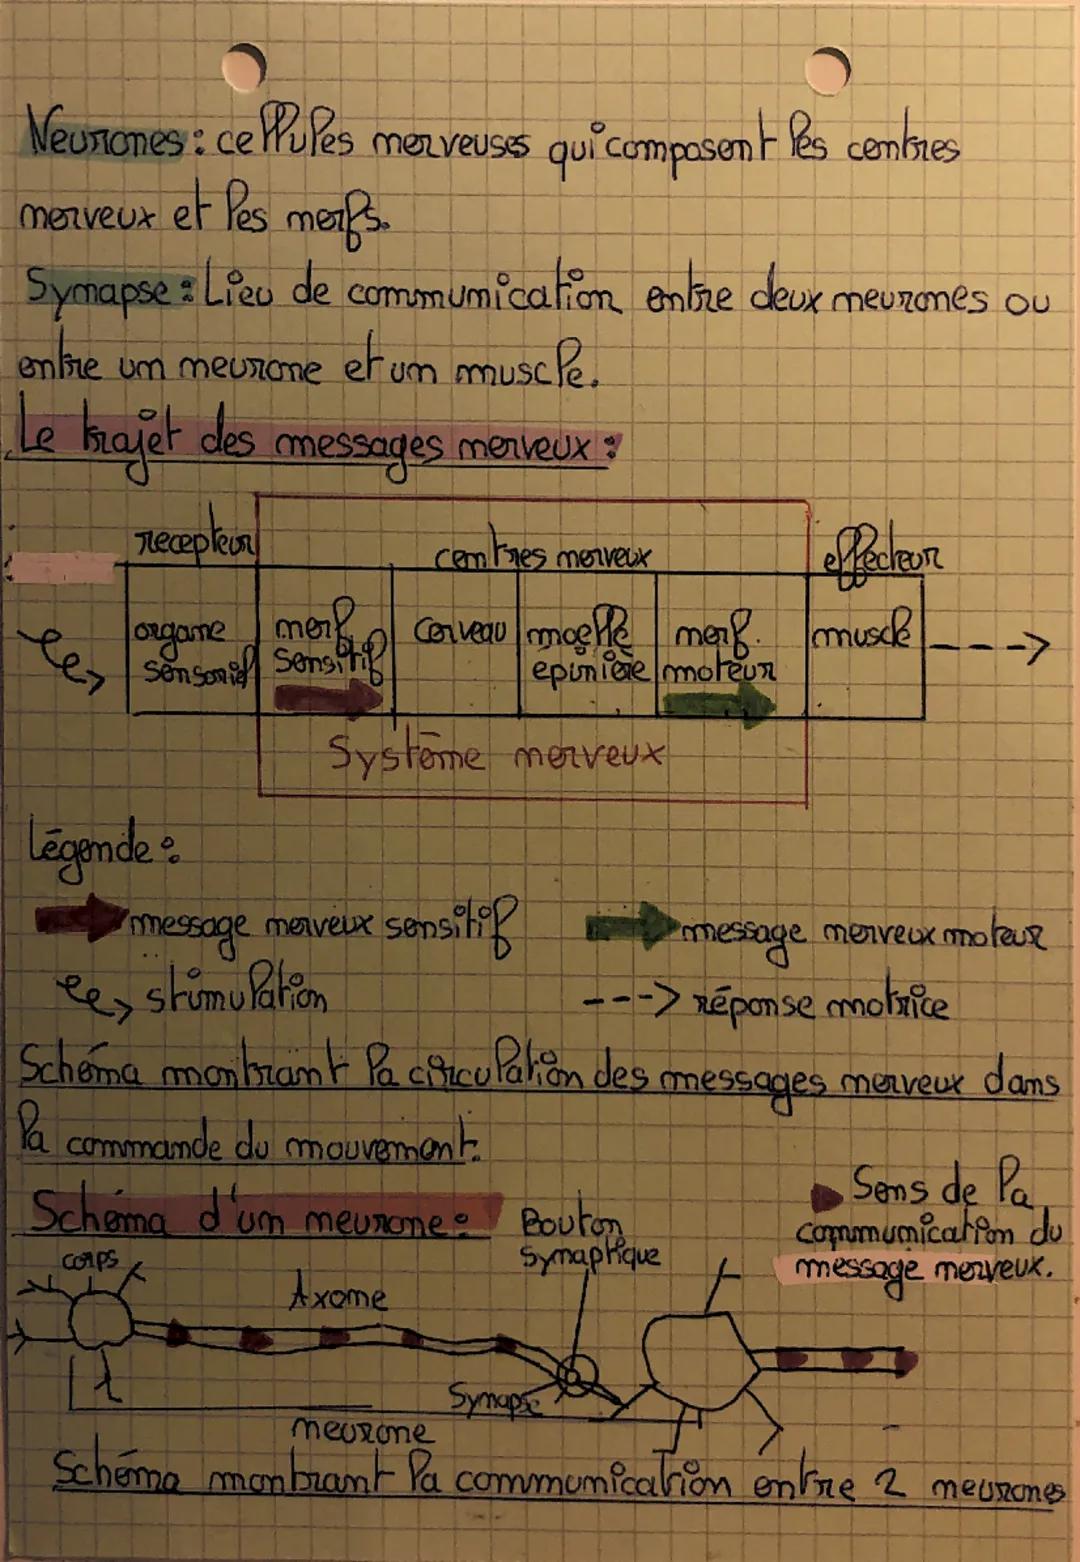 Neurones : cellules nerveuses qui composent les centres
nerveux et les nerfs.
Synapse : Lieu de communication entre deux neurones ou
entre un neurone et un muscle.
Le trajet des messages nerveux :
recepteur
centres nerveux
effecteur
organe sensoriel
nerf sensitif
cerveau
moelle épinière
nerf moteur
muscle
Système nerveux
Légende :
message nerveux sensitif
message nerveux moteur
stimulation
réponse motrice
Schéma montrant la circulation des messages nerveux dans
la commande du mouvement.
Schéma d'un neurone :
Bouton
Synaptique
Sens de la
communication du
message nerveux.
corps
Axone
Synapse
neurone
Schéma montrant la communication entre 2 neurones